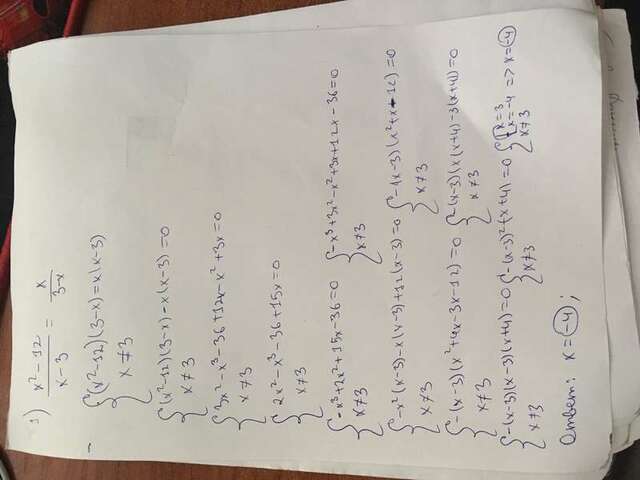 1) (x²-12)/(x-3) = x/(3-x)
- { (x²-12)(3-x)=x(x-3)
x≠3
{ (x²-12)(3-x)-x(x-3)=0
x≠3
{ 3x²-x³-36+12x-x²+3x=0
x≠3
{ 2x²-x³-36+15x=0
x≠3
{ -x³+2x²+15x-36=0 { -x³+3x²-x²+3x+12x-36=0
x≠3 x≠3
{ -x²(x-3)-x(x-3)+12(x-3)=0 { -(x-3)(x²+x-12)=0
x≠3 x≠3
{ -(x-3)(x²+4x-3x-12)=0 { -(x-3)(x(x+4)-3(x+4))=0
x≠3 x≠3
{ -(x-3)(x-3)(x+4)=0 { -(x-3)²(x+4)=0 { [ x=3
x=-4 => x=-4
x≠3 x≠3 x≠3
Ответ: x=-4;